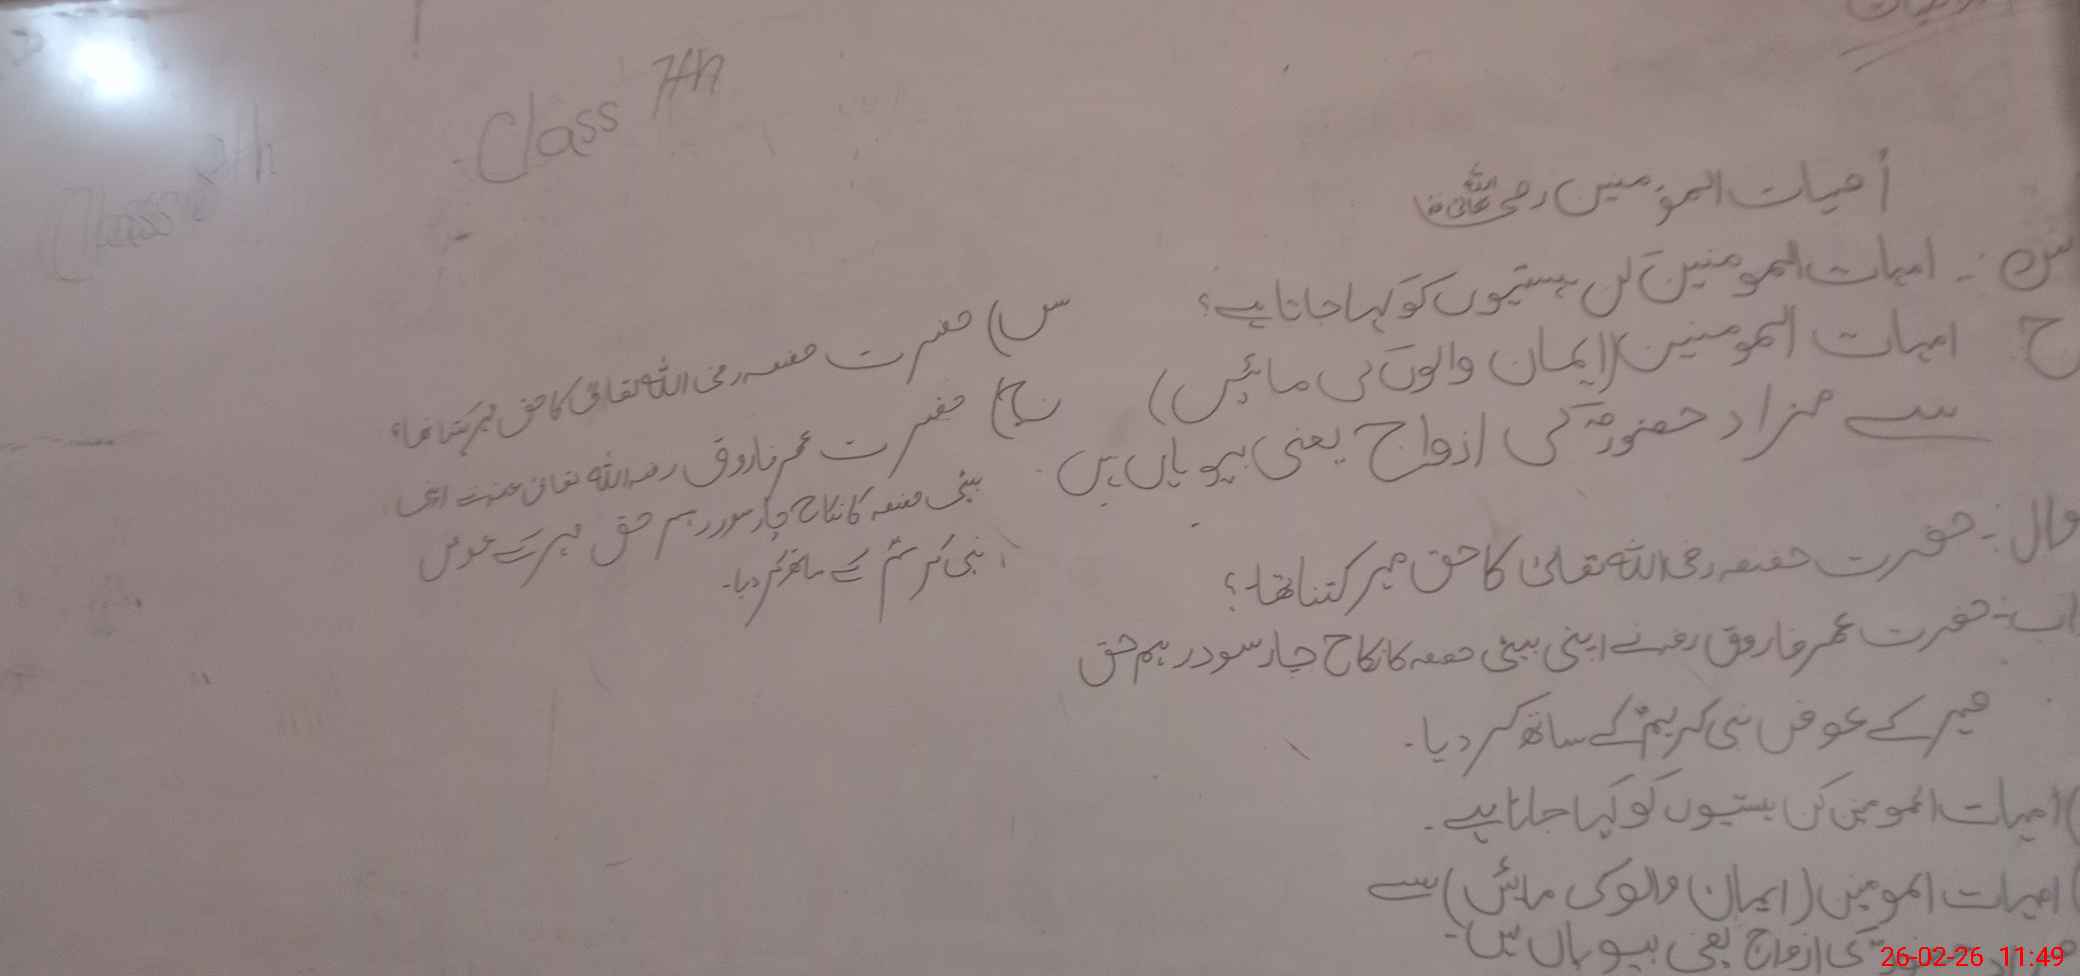 Class 7th
Class 8th
اُمہات المؤمنین رضی اللہ تعالیٰ عنہا
س :- امہات المومنین کن ہستیوں کو کہا جاتا ہے؟
ج امہات المومنین (ایمان والوں کی مائیں)
سے مراد حضورؐ کی ازواج یعنی بیویاں ہیں۔
وال :- حضرت حفصہ رضی اللہ تعالیٰ کا حق مہر کتنا تھا؟
اب :- حضرت عمر فاروق رضہ نے اپنی بیٹی حفصہ کا نکاح چار سو درہم حق
مہر کے عوض نبی کریمؐ کے ساتھ کر دیا۔
) امہات المومین کن ہستیوں کو کہا جاتا ہے۔
) امہات المومین (ایمان والو کی مائیں) سے
کی ازواج یعنی بیویاں ہیں۔
س) حضرت حفصہ رضی اللہ تعالیٰ کا حق مہر کتنا تھا؟
ج) حضرت عمر فاروق رضہ اللہ تعالیٰ عنہ نے اپنی
بیٹی حفصہ کا نکاح چار سو درہم حق مہر کے عوض
نبی کریمؐ کے ساتھ کر دیا۔
26-02-26 11:49